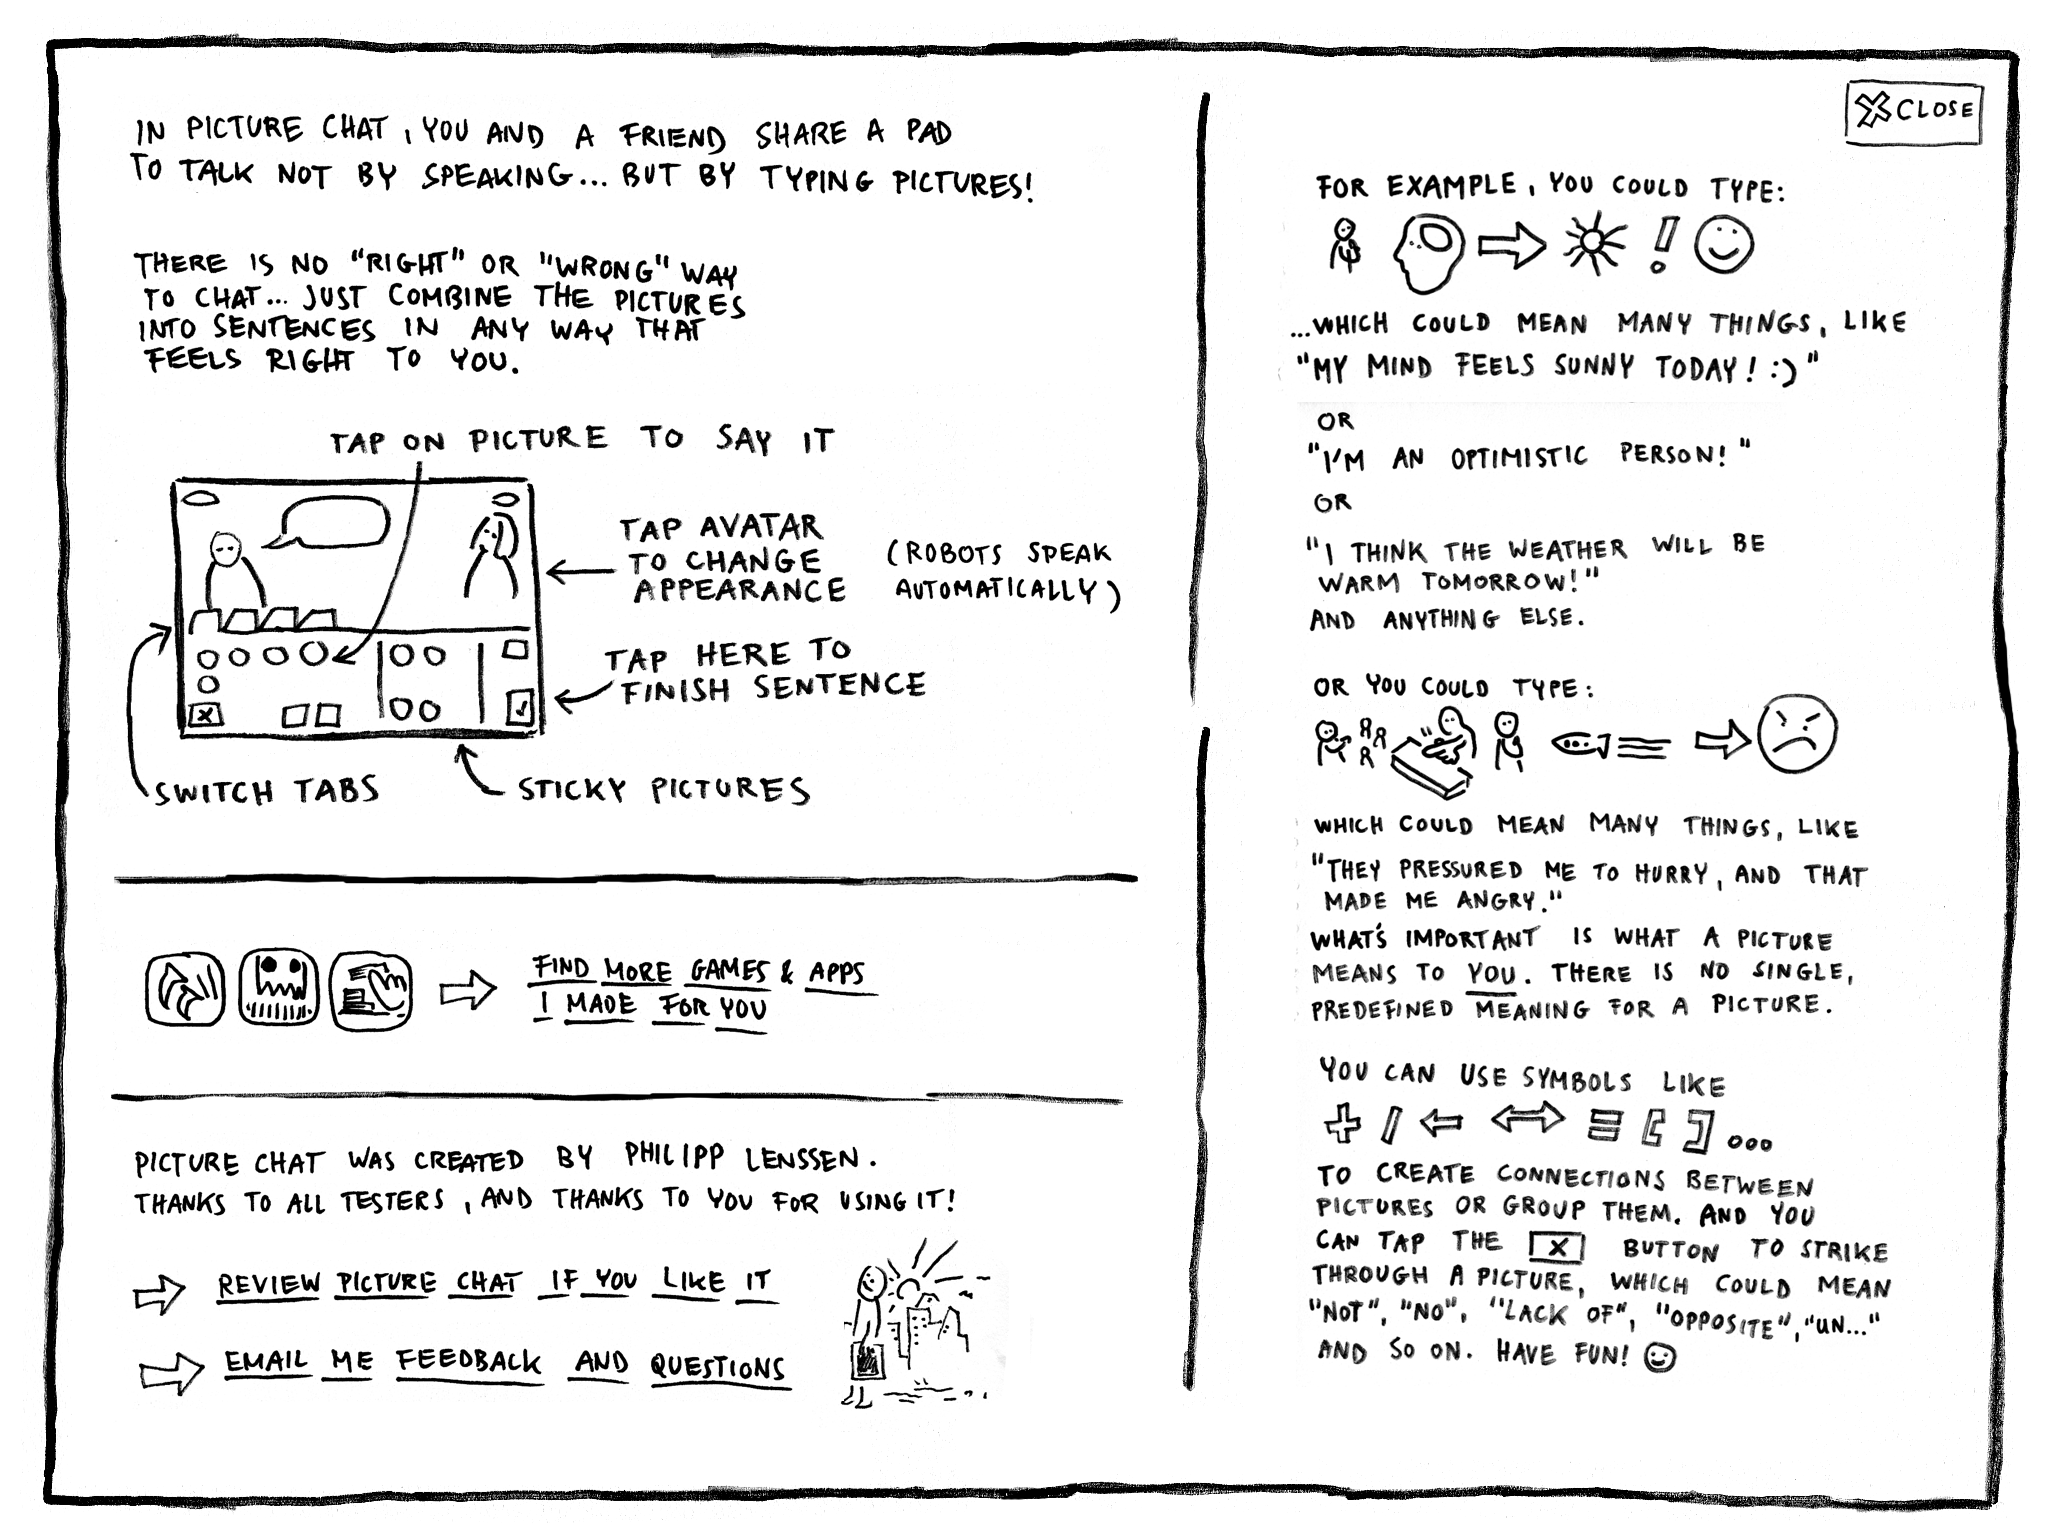 IN PICTURE CHAT, YOU AND A FRIEND SHARE A PAD
TO TALK NOT BY SPEAKING... BUT BY TYPING PICTURES!
THERE IS NO "RIGHT" OR "WRONG" WAY
TO CHAT... JUST COMBINE THE PICTURES
INTO SENTENCES IN ANY WAY THAT
FEELS RIGHT TO YOU.
TAP ON PICTURE TO SAY IT
TAP AVATAR
TO CHANGE
APPEARANCE
(ROBOTS SPEAK
AUTOMATICALLY)
TAP HERE TO
FINISH SENTENCE
SWITCH TABS
STICKY PICTURES
FIND MORE GAMES & APPS
I MADE FOR YOU
PICTURE CHAT WAS CREATED BY PHILIPP LENSSEN.
THANKS TO ALL TESTERS, AND THANKS TO YOU FOR USING IT!
REVIEW PICTURE CHAT IF YOU LIKE IT
EMAIL ME FEEDBACK AND QUESTIONS
CLOSE
FOR EXAMPLE, YOU COULD TYPE:
!
...WHICH COULD MEAN MANY THINGS, LIKE
"MY MIND FEELS SUNNY TODAY! :)"
OR
"I'M AN OPTIMISTIC PERSON!"
OR
"I THINK THE WEATHER WILL BE
WARM TOMORROW!"
AND ANYTHING ELSE.
OR YOU COULD TYPE:
WHICH COULD MEAN MANY THINGS, LIKE
"THEY PRESSURED ME TO HURRY, AND THAT
MADE ME ANGRY."
WHAT'S IMPORTANT IS WHAT A PICTURE
MEANS TO YOU. THERE IS NO SINGLE,
PREDEFINED MEANING FOR A PICTURE.
YOU CAN USE SYMBOLS LIKE
+ / ← ↔ = [ ] ...
TO CREATE CONNECTIONS BETWEEN
PICTURES OR GROUP THEM. AND YOU
CAN TAP THE X BUTTON TO STRIKE
THROUGH A PICTURE, WHICH COULD MEAN
"NOT", "NO", "LACK OF", "OPPOSITE", "UN..."
AND SO ON. HAVE FUN! ☺